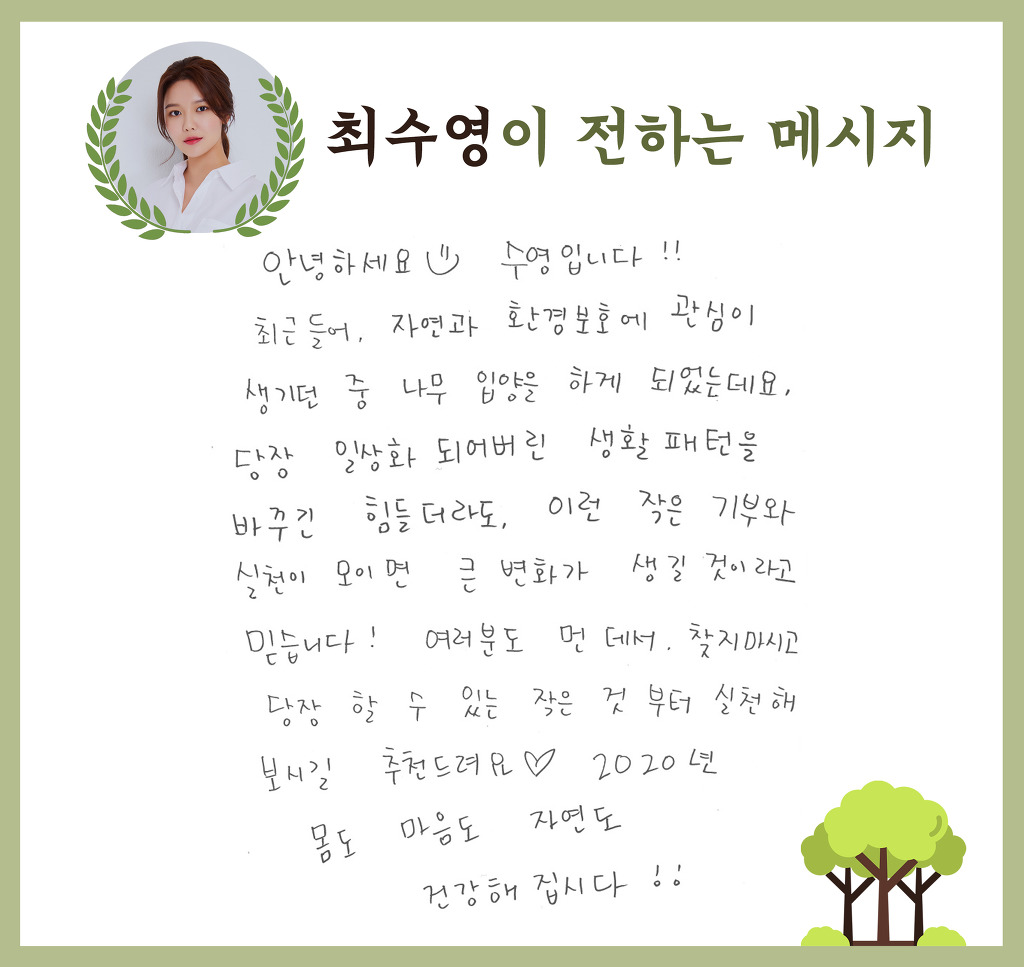 최수영이 전하는 메시지
안녕하세요 수영입니다!!
최근 들어, 자연과 환경보호에 관심이
생기던 중 나무 입양을 하게 되었는데요,
당장 일상화 되어버린 생활 패턴을
바꾸긴 힘들더라도, 이런 작은 기부와
실천이 모이면 큰 변화가 생길 것이라고
믿습니다! 여러분도 먼 데서, 찾지마시고
당장 할 수 있는 작은 것 부터 실천해
보시길 추천드려요♡ 2020년
몸도 마음도 자연도
건강해집시다!!